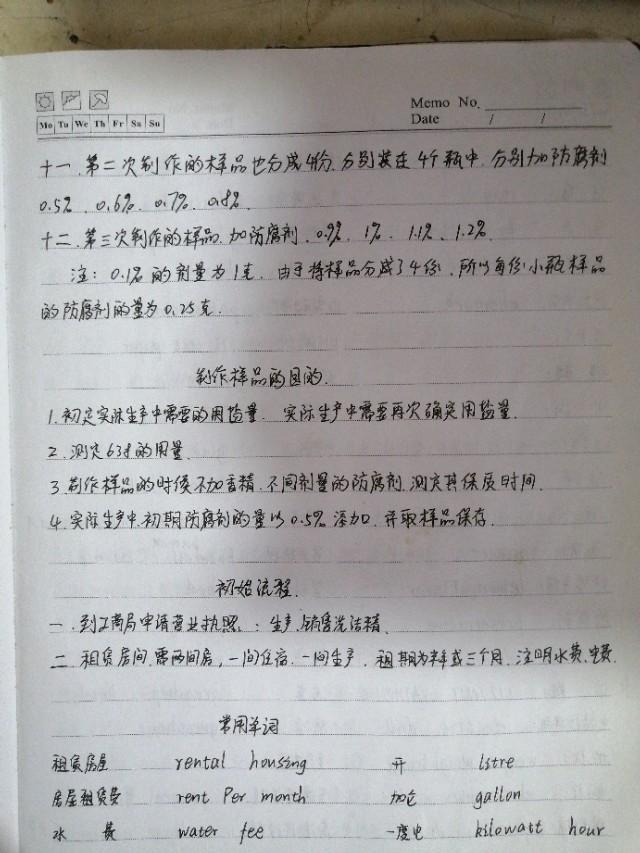 Memo No.
Mo Tu We Th Fr Sa Su
Date / /
十一.第二次制作的样品也分成4份.分别装在4个瓶中.分别加防腐剂
0.5%、0.6%、0.7%、0.8%
十二.第三次制作的样品.加防腐剂、0.9%、1%、1.1%、1.2%
注:0.1%的剂量为1克.由于将样品分成了4份,所以每份小瓶样品
的防腐剂的量为0.25克.
制作样品的目的.
1.初定实际生产中需要的用盐量.实际生产中需要再次确定用盐量.
2.测定638的用量
3.制作样品的时候不加香精.不同剂量的防腐剂.测定其保质时间.
4.实际生产中.初期防腐剂的量以0.5%添加.并取样品保存.
初始流程.
一.到工商局申请营业执照.:生产、销售洗洁精.
二.租赁房间.需两间房,一间住宿.一间生产.租期为半年或三个月.注明水费.电费.
常用单词
租赁房屋 rental housing 升 litre
房屋租赁费 rent Per month 加仑 gallon
水费 water fee 一度电 kilowatt hour